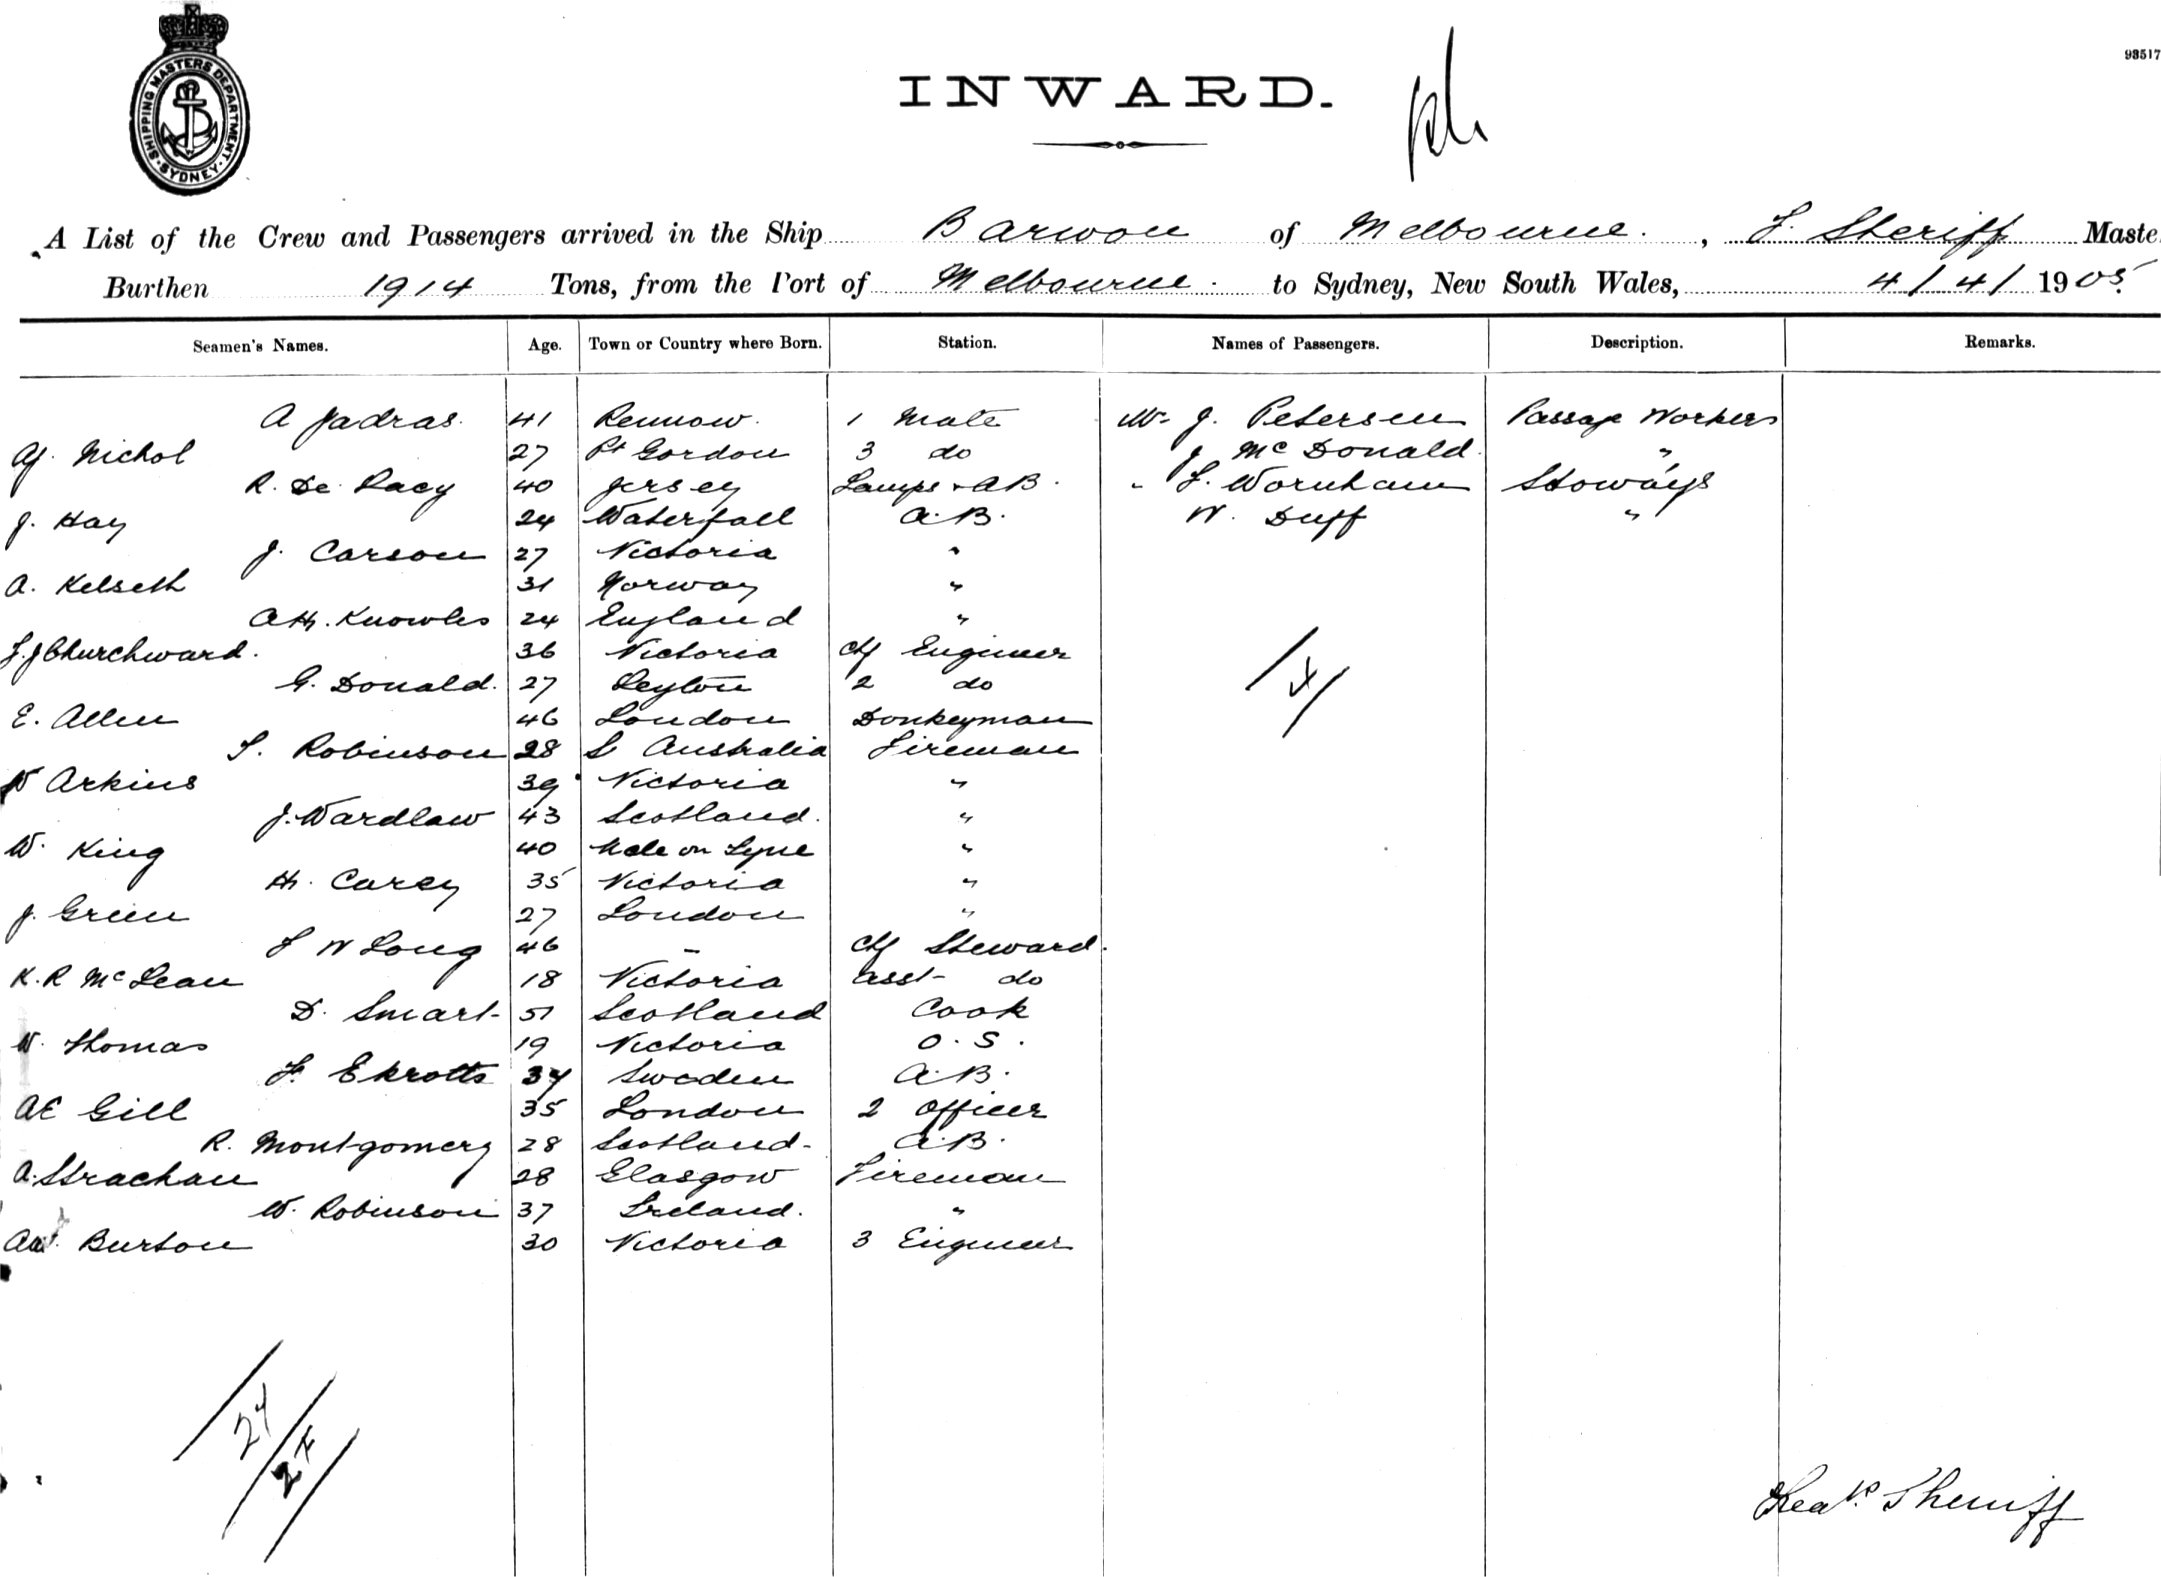 SHIPPING MASTERS DEPARTMENT · SYDNEY ·
93517
INWARD.
A List of the Crew and Passengers arrived in the Ship Barwon of Melbourne. , F. Sheriff Maste
Burthen 1914 Tons, from the Port of Melbourne. to Sydney, New South Wales, 4/4/1905.
Seamen's Names. Age. Town or Country where Born. Station. Names of Passengers. Description. Remarks.
A Jadras. 41 1 Mate Mr J. Petersen Passage Workers
Nichol 27 Pt Gordon 3 do J McDonald "
R. De Lacy 40 Jersey Lamps & AB. " F. Wornham Stoways
J. Hay 24 Waterfall A.B. W. Duff "
J. Carson 27 Victoria "
A. Kelseth 31 Norway "
AH. Knowles 24 England "
F.J Churchward. 36 Victoria Chf Engineer
G. Donald. 27 Leyton 2 do 4
E. Allen 46 London Donkeyman
S. Robinson 28 S Australia Fireman
W Arkins 39 Victoria "
J. Wardlaw 43 Scotland. "
W. King 40 on Lyne "
H. Carey 35 Victoria "
J. Green 27 London "
F W Long 46 - Chf Steward.
K.R McLean 18 Victoria Asst do
D. Smart 51 Scotland Cook
W. Thomas 19 Victoria O.S.
F. Ekrotts 37 Sweden A.B.
AE Gill 35 London 2 Officer
R. Montgomery 28 Scotland A.B.
A. Strachan 28 Glasgow Fireman
W. Robinson 37 Ireland. "
Burton 30 Victoria 3 Engineer
27
27
Sheriff